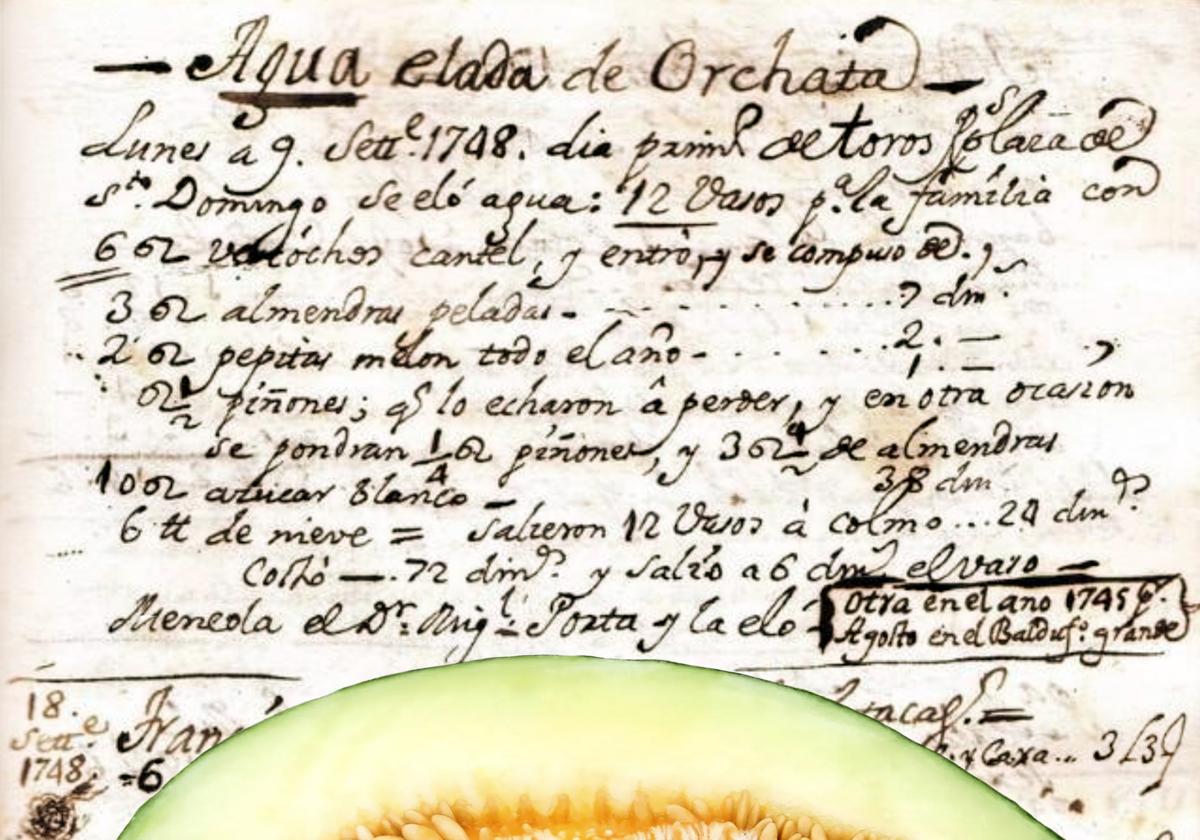 — Agua elada de Orchata —
Lunes a 9. Sett.e 1748. dia prim.r de toros Plaza de
S.to Domingo se eló agua: 12 Vasos p.a la família con
6 62 cantel, y entrò, y se compuso de.
3 62 almendras peladas - . . . . . . 7 dm.
2 62 pepitas melon todo el año - . . . . . 2. —
62 1/2 piñones; q.s lo echaron â perder, y en otra ocasion 1. —
se pondran 1/4 62 piñones, y 3 62 1/2 de almendras
10 62 azucar blanco — 38 dm
6 tt de nieve = Salieron 12 Vasos à colmo ... 24 din.s
Costó —. 72 din.s y salió a 6 din.s el vaso —
el D.r Mig.l Porta y la elo
Otra en el ano 1745 6.
Agosto en el Balduf.o grande
18.
Sett.e
1748.
Fran
=6
y Caxa... 3 L 3